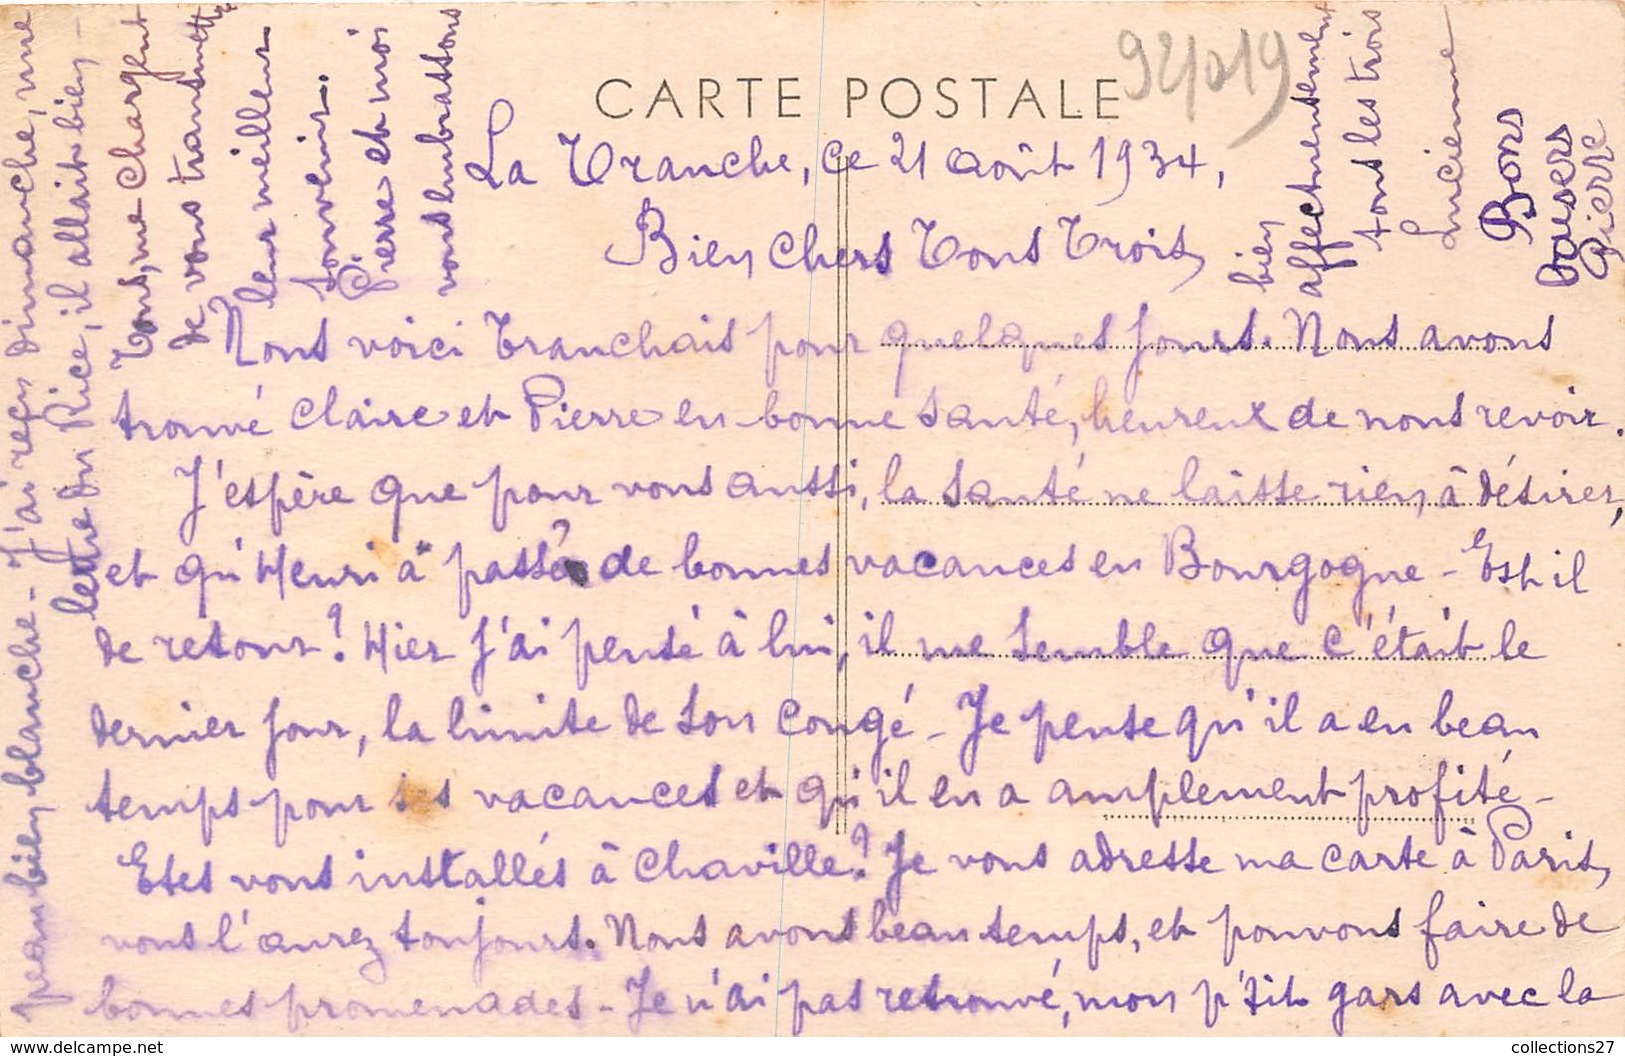 CARTE POSTALE
92/019
La Tranche, ce 21 août 1934,
Bien chers Tous Trois,
Nous voici Tranchais pour quelques jours. Nous avons
trouvé Claire et Pierre en bonne santé, heureux de nous revoir.
J'espère que pour vous aussi, la santé ne laisse rien à désirer,
et qu'Henri a passé de bonnes vacances en Bourgogne - Est il
de retour ? Hier j'ai pensé à lui, il me semble que c'était le
dernier jour, la limite de son congé - Je pense qu'il a eu beau
temps pour ses vacances et qu'il en a amplement profité -
Etes vous installés à Chaville ? Je vous adresse ma carte à Paris,
vous l'aurez toujours. Nous avons beau temps, et pouvons faire de
bonnes promenades - Je n'ai pas retrouvé, mon p'tit gars avec la
peau bien blanche - J'ai reçu dimanche, une
lettre du Rice, il allait bien -
Tous, me chargent
de vous transmettre
leur meilleur
souvenir.
Pierre et moi
vous embrassons
bien
affectueusement
tous les trois
Lucienne
Bons
baisers
Pierre
collections27